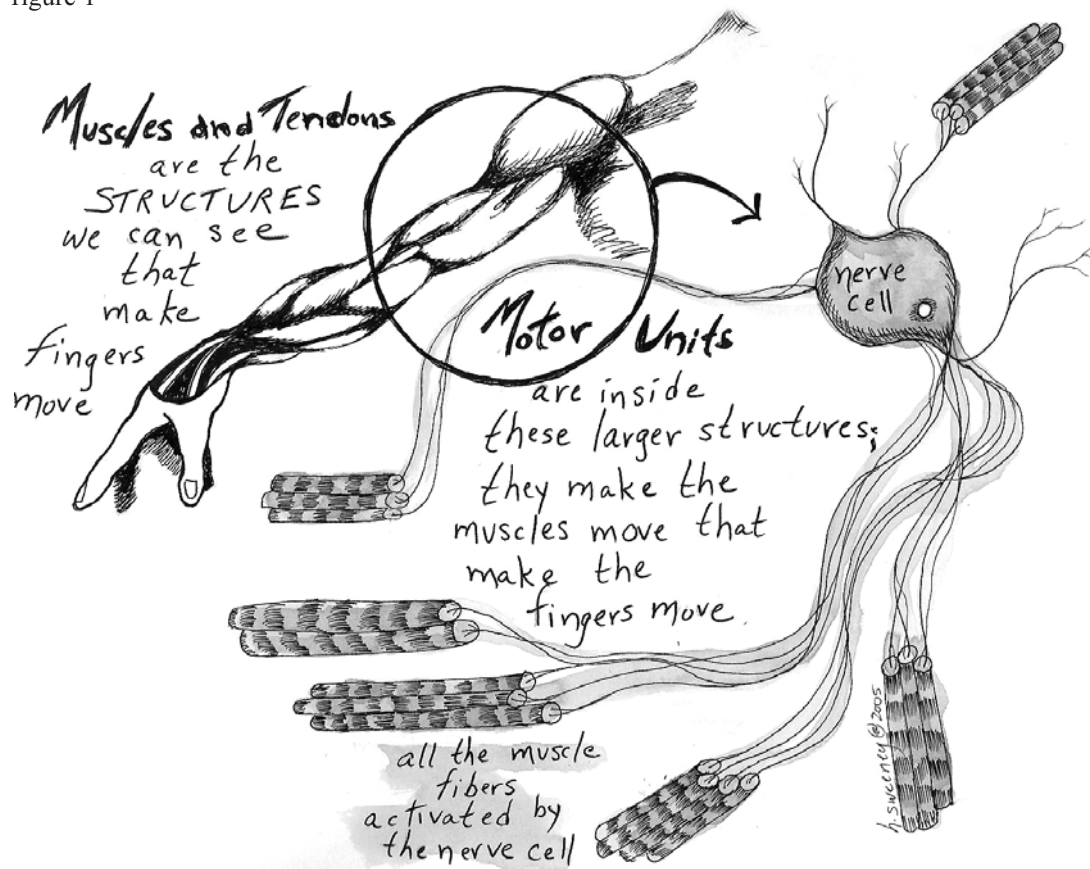 figure 1
Muscles and Tendons
are the
STRUCTURES
we can see
that
make
fingers
move
nerve
cell
Motor Units
are inside
these larger structures;
they make the
muscles move that
make the
fingers move.
all the muscle
fibers
activated by
the nerve cell
h. sweeney © 2005